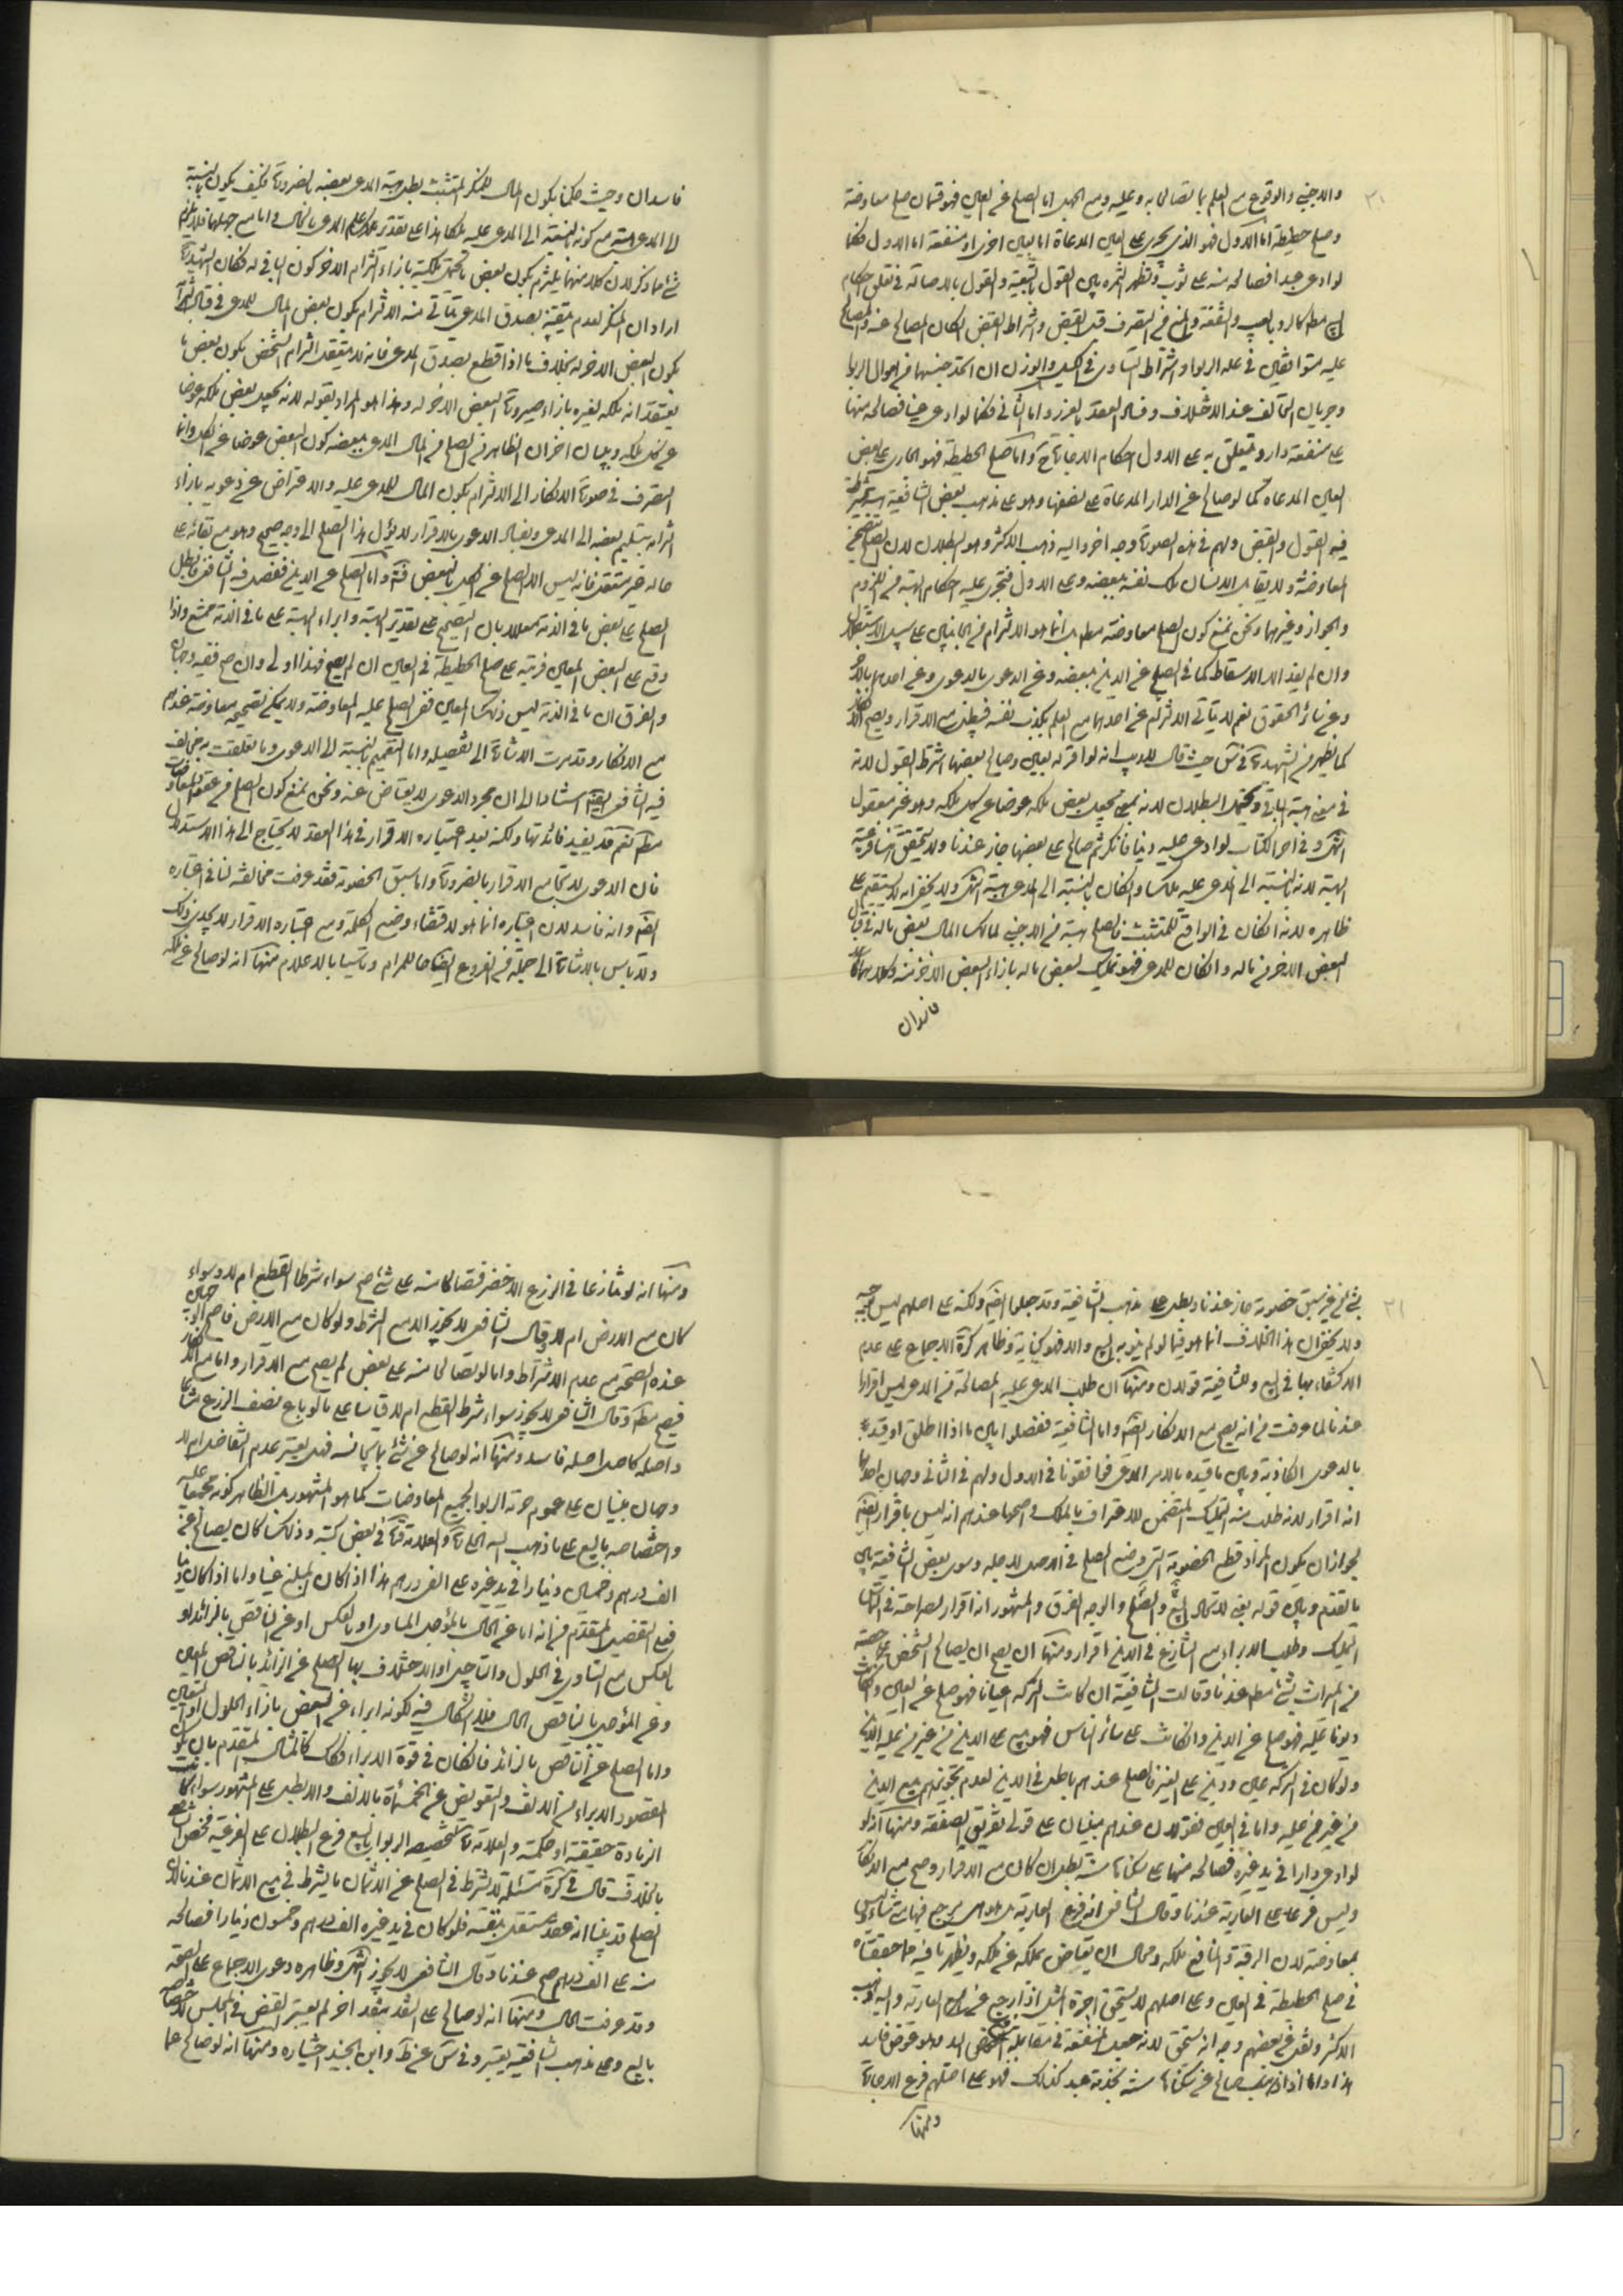 ٢٠
والاجنبي والوقوع مع العلم بما تصالحا به وعليه ومع الجهل اما الصلح عن العين فهو قسمان صلح معاوضة
وصلح حطيطة اما الاول فهو الذي يجري على العين المدعاة اما بعين اخرى او منفعة اما الاول فكما
لو ادعى عبدا فصالحه منه على ثوب وتظهر الثمرة بين القول بالتبعية والقول بالاصالة في تعلق احكام
البيع مطلقا كالرد بالعيب والشفعة والمنع في التصرف قبل القبض واشتراط القبض ان كان المصالح عنه والمصالح
عليه متوافقين في علة الربوا واشتراط التساوي في الكيل والوزن ان اتحد جنسهما في اموال الربا
وجريان التحالف عند الاختلاف وفساد العقد بالغرر واما الثاني فكما لو ادعى عينا فصالحه منها
على منفعة دار ويتعلق به على الاول احكام الاجارة واما صلح الحطيطة فهو الجاري على بعض
العين المدعاة كما لو صالح عن الدار المدعاة على نصفها وهو على مذهب بعض الشافعية هبة يشترط
فيه القبول والقبض ولهم في هذه الصورة وجه اخر واليه ذهب الاكثر وهو البطلان لان الصلح يتضمن
المعاوضة ولا يقابل الانسان ملك نفسه ببعضه وعلى الاول فتجري عليه احكام الهبة من اللزوم
والجواز وغيرهما ونحن نمنع كون الصلح معاوضة مطلقا بل انما هو الالتزام في الجانبين على سبيل الاستقلال
وان لم يفد الا الاسقاط كما في الصلح عن الدين ببعضه وعن الدعوى بالدعوى وعن احدهما بالآخر
وعن سائر الحقوق نعم لا يتأتى الالتزام عن احدهما مع العلم بكذب نفسه فيبطل مع الاقرار ويصح مع الانكار
كما يظهر من الشهيد حيث قال لا ريب انه لو اقر له بعين وصالح ببعضها اشترط القبول لانه
في معنى هبة الباقي ويحتمل البطلان لانه بمعنى جعل بعض ملكه عوضا عن كل ملكه وهو غير معقول
انتهى وفي آخر الكتاب لو ادعى عليه دينا فانكر ثم صالح على بعضها جاز عندنا ولا يتحقق هنا فرعية
الهبة لانه بالنسبة الى المدعى عليه ملكا وان كان بالنسبة الى المدعي هبة انتهى ولا يخفى انه لا يستقيم على
ظاهره لانه ان كان في الواقع للمتشبث فالصلح هبة من الاجنبي لمالك المال بعض ماله في قبال
البعض الاخر من ماله وان كان للمدعي فهو تمليك لبعض ماله بازاء البعض الاخر منه وكلاهما
فاسدان
فاسدان وحيث حكمنا بكون المال للمنكر المتشبث بطل هبة المدعي بعضه بالضرورة فكيف يكون بالنسبة
الى المدعي هبة مع كونه بالنسبة الى المدعى عليه ملكا هذا على تقدير علم المدعي بالحال واما مع جهلهما فلا يلزم
شئ مما ذكر لان كلا منهما يلتزم بكون بعض ما يحتمل ملكيته بازاء التزام الاخر كون الباقي له فكان الشهيد
اراد ان المنكر لعدم تيقنه بصدق المدعي يتأتى منه الالتزام بكون بعض المال للمدعي في قبال التزامه
بكون البعض الاخر له بخلاف ما اذا قطع بصدق المدعي فانه لا يتعقل التزام الشخص بكون بعض ما
يعتقد انه ملكه لغيره بازاء صيرورة البعض الاخر له وهذا هو المراد بقوله لانه يجعل بعض ملكه عوضا
عن كل ملكه وببيان اخر ان الظاهر من الصلح من المال المدعى ببعضه كون البعض عوضا عن الكل وانما
المتصرف في صورة الانكار الى الالتزام بكون المال للمدعى عليه والاعتراض عن دعويه بازاء
التزامه بتسليم بعضه الى المدعي وبقبال الدعوى بالاقرار لا يؤل هذا الصلح الى وجه صحيح وهو مع بقائه على
حاله غير متعقل فانه ليس الا الصلح عن الكل بالبعض واما الصلح عن الدين ففصل فيه الشافعي فابطل
الصلح على بعض ما في الذمة معللا بان التصحيح على تقدير الهبة وابراء الهبة على ما في الذمة ممتنع واذا
وقع على البعض المعين فرتبه على صلح الحطيطة في العين ان لم يصح فهذا اولى وان صح ففيه وجهان
والفرق ان ما في الذمة ليس ذلك المعين ففي الصلح عليه المعاوضة ولا يمكن تصحيحه معاوضة عندهم
مع الانكار وقد مرت الاشارة الى تفصيله واما التعميم بالنسبة الى الدعوى وما تعلقت به فخالف
فيه الشافعي ايضا استنادا الى ان مجرد الدعوى لا يعتاض عنه ونحن نمنع كون الصلح من عقود المعاوضات
مطلقا نعم قد يفيد فائدتها ولكنه بعد اعتباره الاقرار في هذا العقد لا يحتاج الى هذا الاستدلال
فان الدعوى لا تجامع الاقرار بالضرورة واما سبق الخصومة فقد عرفت مخالفته لنا في اعتباره
ايضا وانه فاسد لان اعتباره انما هو لاقتضاء وضع الكلمة ومع اعتباره الاقرار لا يجدي ذلك
ولا باس بالاشارة الى جملة من الفروع ايضاحا للمرام وتاسيا بالاعلام منها انه لو صالح عن ملكه
٢١
بشئ من غير سبق خصومة جاز عندنا وبطل على مذهب الشافعية وقد جعلها ايضا ولكنه على اصلهم ليس بوجيه
ولا يخفى ان هذا الخلاف انما هو فيما لو لم ينويه البيع والا فهو كناية وظاهر كرة الاجماع على عدم
الاكتفاء بها في البيع وللشافعية قولان ومنها ان طلب المدعى عليه المصالحة من المدعي ليس اقرارا
عندنا لما عرفت من انه يصح مع الانكار ايضا واما الشافعية ففصلوا بين ما اذا اطلق او قيده
بالدعوى الكاذبة وبين ما قيده بالامر المدعى فوافقونا في الاول ولهم في الثاني وجهان احدهما
انه اقرار لانه طلب منه التمليك المتضمن للاعتراف بالملك واصحها عندهم انه ليس باقرار ايضا
لجواز ان يكون المراد قطع الخصومة التي وضع الصلح في الاصل لاجله وسوى بعض الشافعية بين
ما تقدم وبين قوله بعني لاشتمال البيع والصلح والوجه الفرق والمشهور انه اقرار لصراحته في التماس
التمليك وطلب الابراء مع التنازع في الدين اقرار ومنها ان يصح ان يصالح الشخص على حصته
من الميراث بشئ مطلقا عندنا وقالت الشافعية ان كانت التركة اعيانا فهو صلح عن العين وان كانت
ديونا عليه فهو صلح عن الدين وان كانت على سائر الناس فهو بيع على الدين من غير من عليه الدين
ولو كان في التركة عين ودين على الغير فالصلح عندهم باطل في الدين لعدم تجويزهم بيع الدين
من غير من عليه واما في العين فقولان عندهم مبنيان على قولي تفريق الصفقة ومنها انه لو
لو ادعى دارا في يد غيره فصالحه منها على سكناها سنة بطل ان كان مع الاقرار وصح مع الانكار
وليس فرعا على العارية عندنا وقال الشافعي انه فرع العارية بل هو هي يرجع فيها متى شاء وليس
بمعاوضة لان الرقبة والمنافع ملكه ومحال ان يعتاض بملكه عن ملكه ويظهر ما فيه مما حققناه
في صلح الحطيطة في العين وعلى اصلهم لا يستحق اجرة المثل اذا رجع عن العارية واليه ذهب
الاكثر ونقل عن بعضهم وجه انه يستحق لانه جعل المنفعة في مقابلة وهو عوض فاسد
هذا واما اذا صالح عن سكناها سنة بخدمة عبد كذلك فهو على اصلهم فرع الاجارة
ومنها
ومنها انه لو تنازعا في الزرع الاخضر فتصالحا منه على شئ صح سواء شرطا القطع ام لا وسواء
كان مع الارض ام لا وقال الشافعي لا يجوز الا مع الشرط ولو كان مع الارض فاصح الوجهين
عنده الصحة مع عدم الاشتراط واما لو تصالحا منه على بعض لم يصح مع الاقرار واما مع الانكار
فيصح مطلقا وقال الشافعي لا يجوز سواء شرط القطع ام لا قياسا على ما لو باع نصف الزرع مشاعا
واصله كاصل اصله فاسد ومنها انه لو صالح عن شئ بما يجانسه فهل يعتبر عدم التفاضل ام لا
وجهان مبنيان على عموم حرمة الربوا لجميع المعاوضات كما هو المشهور بل الظاهر كونه مجمعا عليه
واختصاصه بالبيع على ما ذهب اليه الحلي والعلامة في بعض كتبه وذلك كما كان يصالح عن
الف درهم وخمسين دينارا في يد غيره على الفي درهم هذا اذا كان المبلغ عينا واما اذا كان دينا
ففيه التفصيل المتقدم من انه اما عن الحال بالمؤجل المساوي او بالعكس او عن الناقص بالزائد او
بالعكس مع التساوي في الحلول والتاجيل او الاختلاف بها الصلح عن الزائد بالناقص المعين
وعن المؤجل بالناقص الحال فلا اشكال فيه لكونه ابراء عن البعض بازاء الحلول او التعيين
واما الصلح عن الناقص بالزائد فان كان في قوة الابراء فكذلك كالمثال المتقدم بان يكون
المقصود الابراء من الالف والتعويض عن الخمسمائة بالالف والا بطل على المشهور سواء كانت
الزيادة حقيقة او حكمية والعلامة لتخصيصه الربوا بالبيع فرع البطلان على الفرعية فخص الشافعي
بالخلاف قال في كرة مسئلة لا يشترط في الصلح عن الاثمان ما يشترط في بيع الاثمان عندنا لان
الصلح قد بينا انه عقد مستقل بنفسه فلو كان في يد غيره الف درهم وخمسون دينارا فصالحه
منه على الف درهم صح عندنا وقال الشافعي لا يجوز انتهى وظاهره دعوى الاجماع على الصحة
وقد عرفت الحال ومنها انه لو صالح على النقد بنقد اخر لم يعتبر القبض في المجلس لاختصاصه
بالبيع وعلى مذهب الشافعية يعتبر وفي س عن ط وابن الجنيد اختياره ومنها انه لو صالح عما